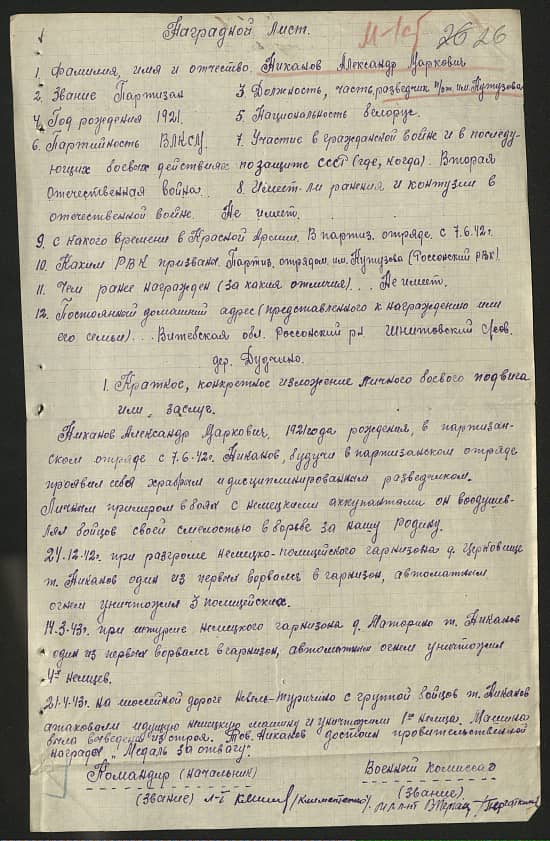 Наградной лист.
М-1с/5 26 26
1. Фамилия, имя и отчество Никанов Александр Маркович
2. Звание Партизан 3. Должность, часть, разведчик п/от им. Кутузова
4. Год рождения 1921. 5. Национальность белорус.
6. Партийность ВЛКСМ 7. Участие в гражданской войне и в последу-
ющих боевых действиях по защите СССР (где, когда). Вторая
отечественная война. 8. Имеет ли ранения и контузии в
отечественной войне. Не имеет.
9. С какого времени в Красной Армии. В партиз. отряде. с 7.6.42г.
10. Каким РВК призван. Партиз. отрядом им. Кутузова (Россонский РВК)
11. Чем ранее награжден (за какия отличия)... Не имеет.
12. Постоянной домашний адрес (представленного к награждению или
его семьи)... Витебская обл. Россонский р-н Шнитовский с/сов.
дер. Дудчино.
1. Краткое, конкретное изложение личного боевого подвига
или заслуг.
Никанов Александр Маркович, 1921 года рождения, в партизан-
ском отряде с 7.6.42г. Никанов, будучи в партизанском отряде
проявил себя храбрым и дисциплинированным разведчиком.
Личным примером в боях с немецкими аккупантами он воодушев-
лял бойцов своей смелостью в борьбе за нашу Родину.
24.12.42г. при разгроме немецко-полицейского гарнизона д. Церковище
т. Никанов один из первых ворвался в гарнизон, автоматным
огнем уничтожил 3 полицейских.
14.3.43г. при штурме немецкого гарнизона д. Маторино т. Никанов
один из первых ворвался в гарнизон, автоматным огнем уничтожил
4х немцев.
21.4.43г. на шоссейной дороге Невель-Туричино с группой бойцов т. Никанов
атаковали идущую немецкую машину и уничтожили 1го немца. Машина
была выведена из строя. Тов. Никанов достоин правительственной
награды "Медаль за отвагу".
Командир (начальник) Военной комиссар
(звание) (звание)